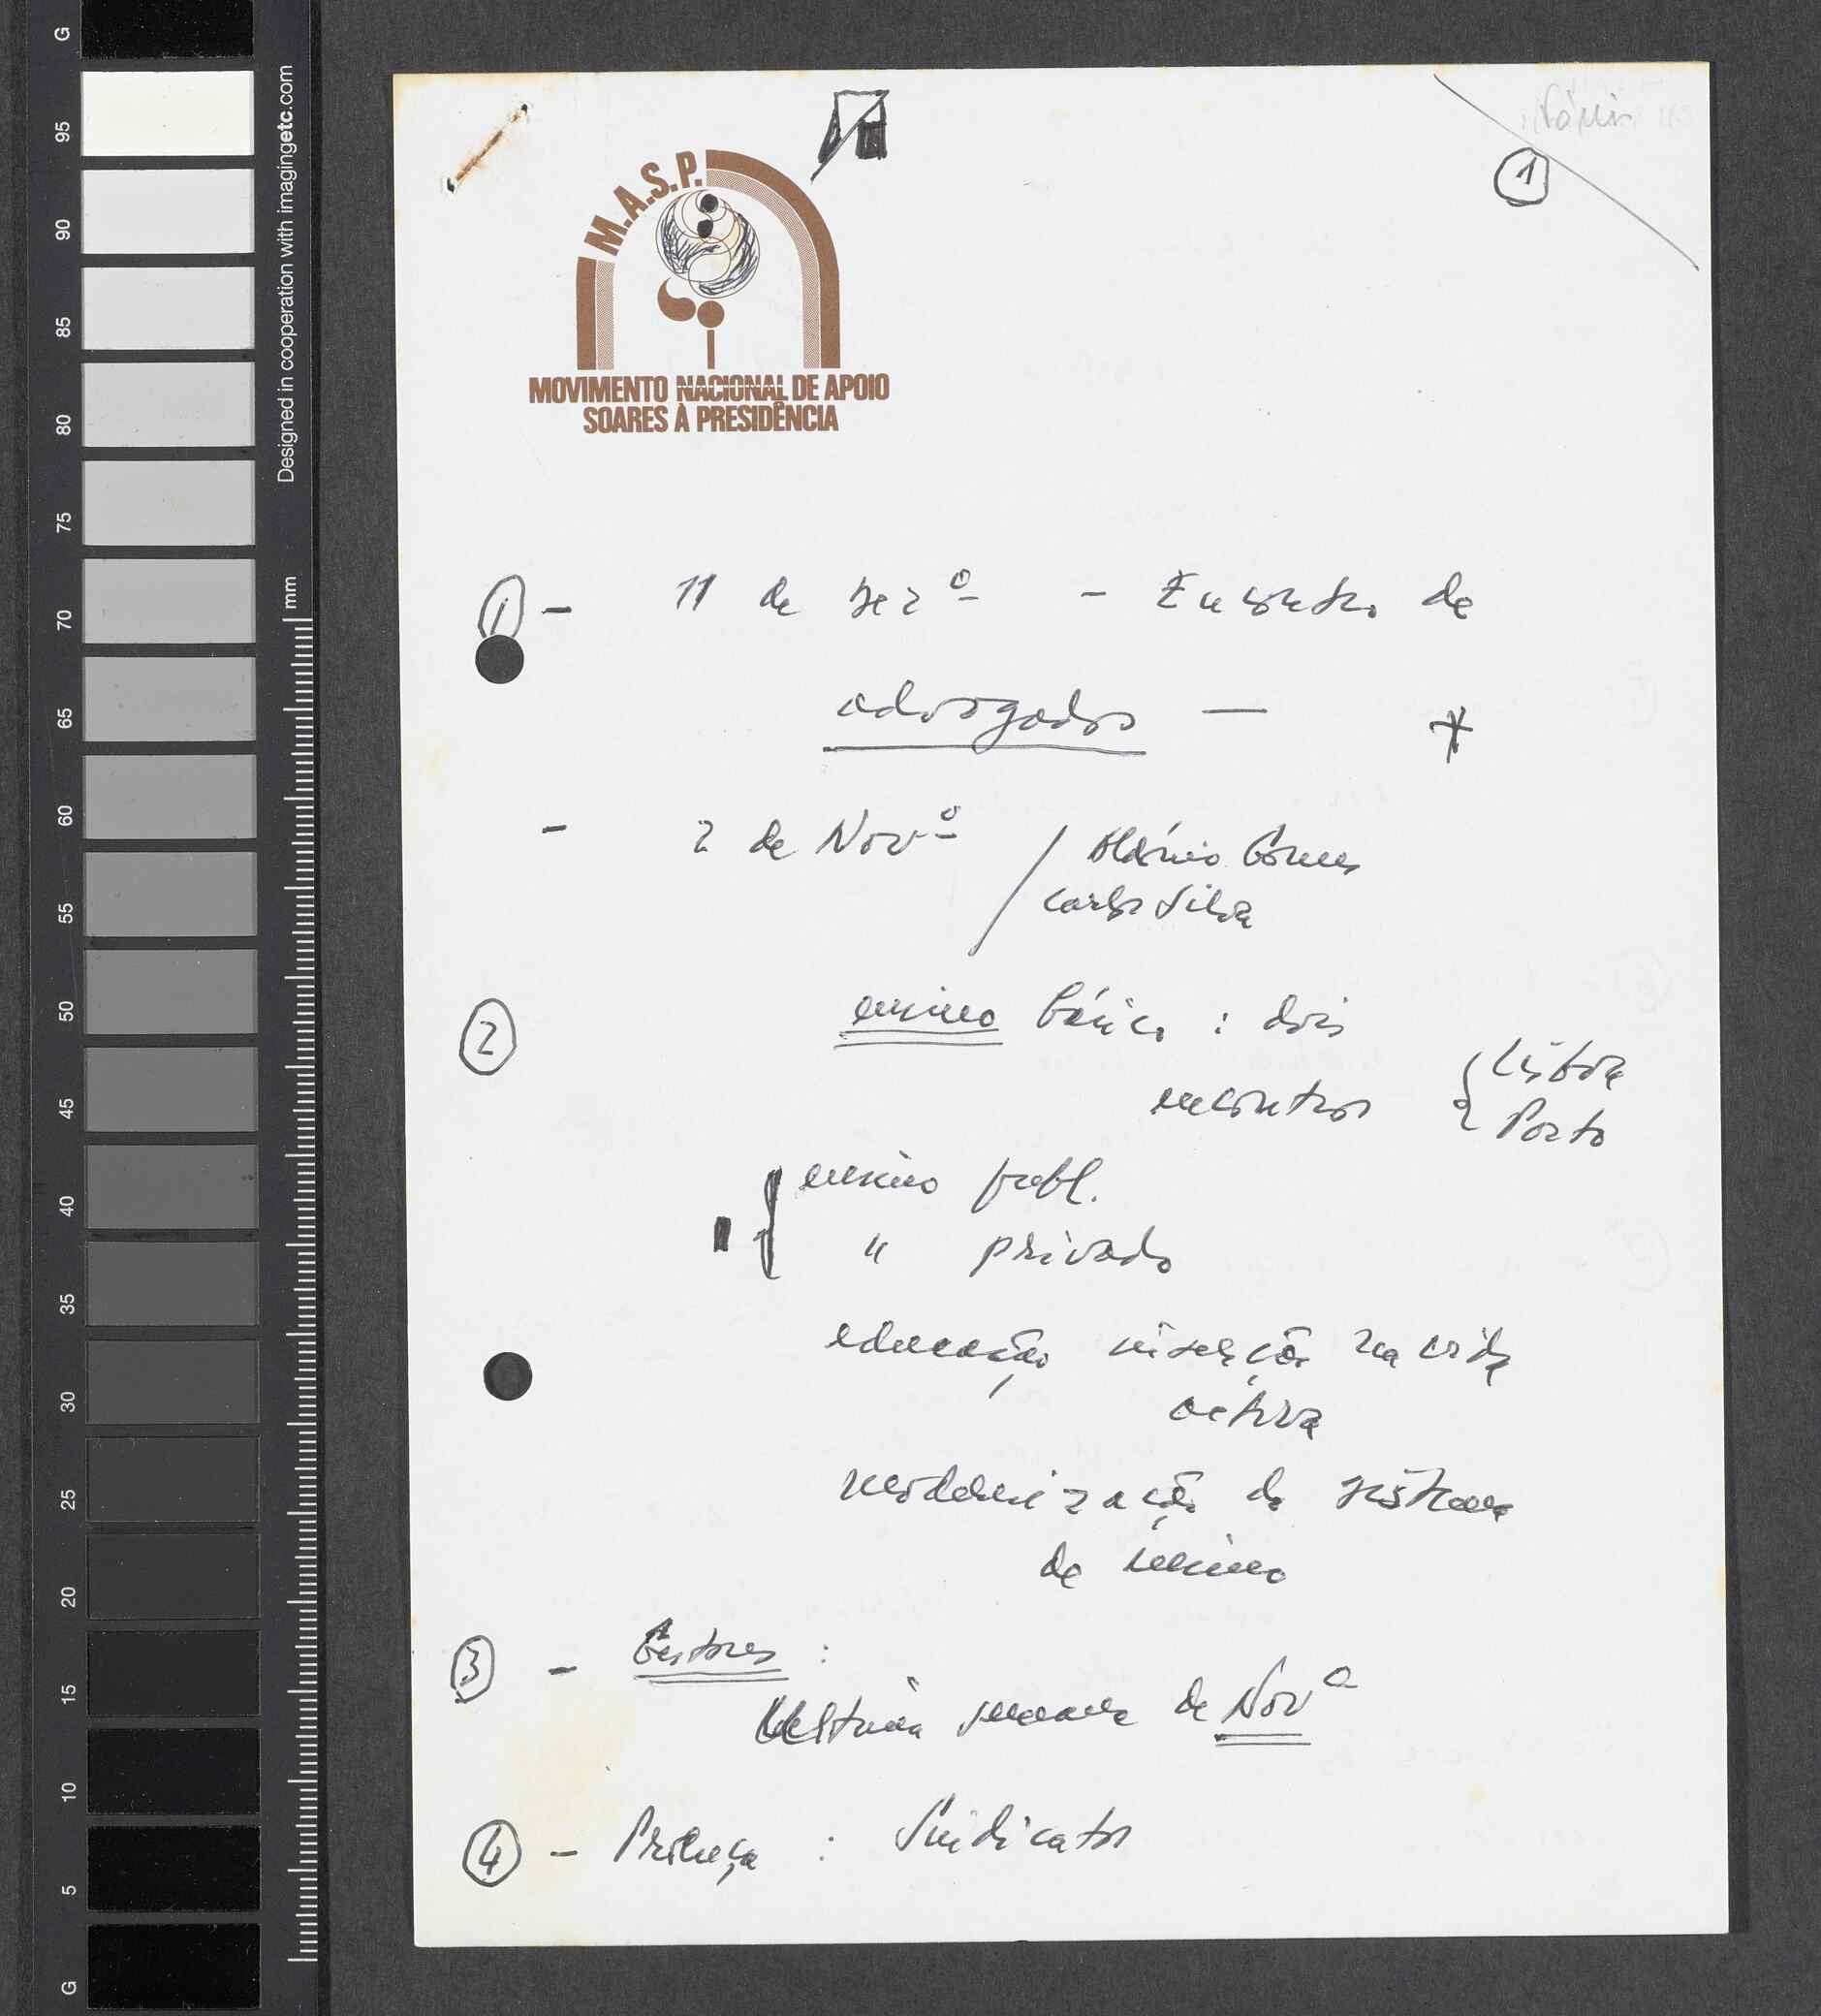 ①
M.A.S.P.
MOVIMENTO NACIONAL DE APOIO
SOARES À PRESIDÊNCIA
① - 11 de Dezº - Encontro de
advogados — *
- 2 de Novº / Mário Gomes
Carlos Silva
② ensino básico : dois
encontros { Lisboa
Porto
{ ensino publ.
" privado
educação inserção na vida
activa
modernização do sistema
de ensino
③ - Gestores :
última semana de Novº
④ - Presença : Sindicatos
Designed in cooperation with imagingetc.com
mm
G
95
90
85
80
75
70
65
60
55
50
45
40
35
30
25
20
15
10
5
G